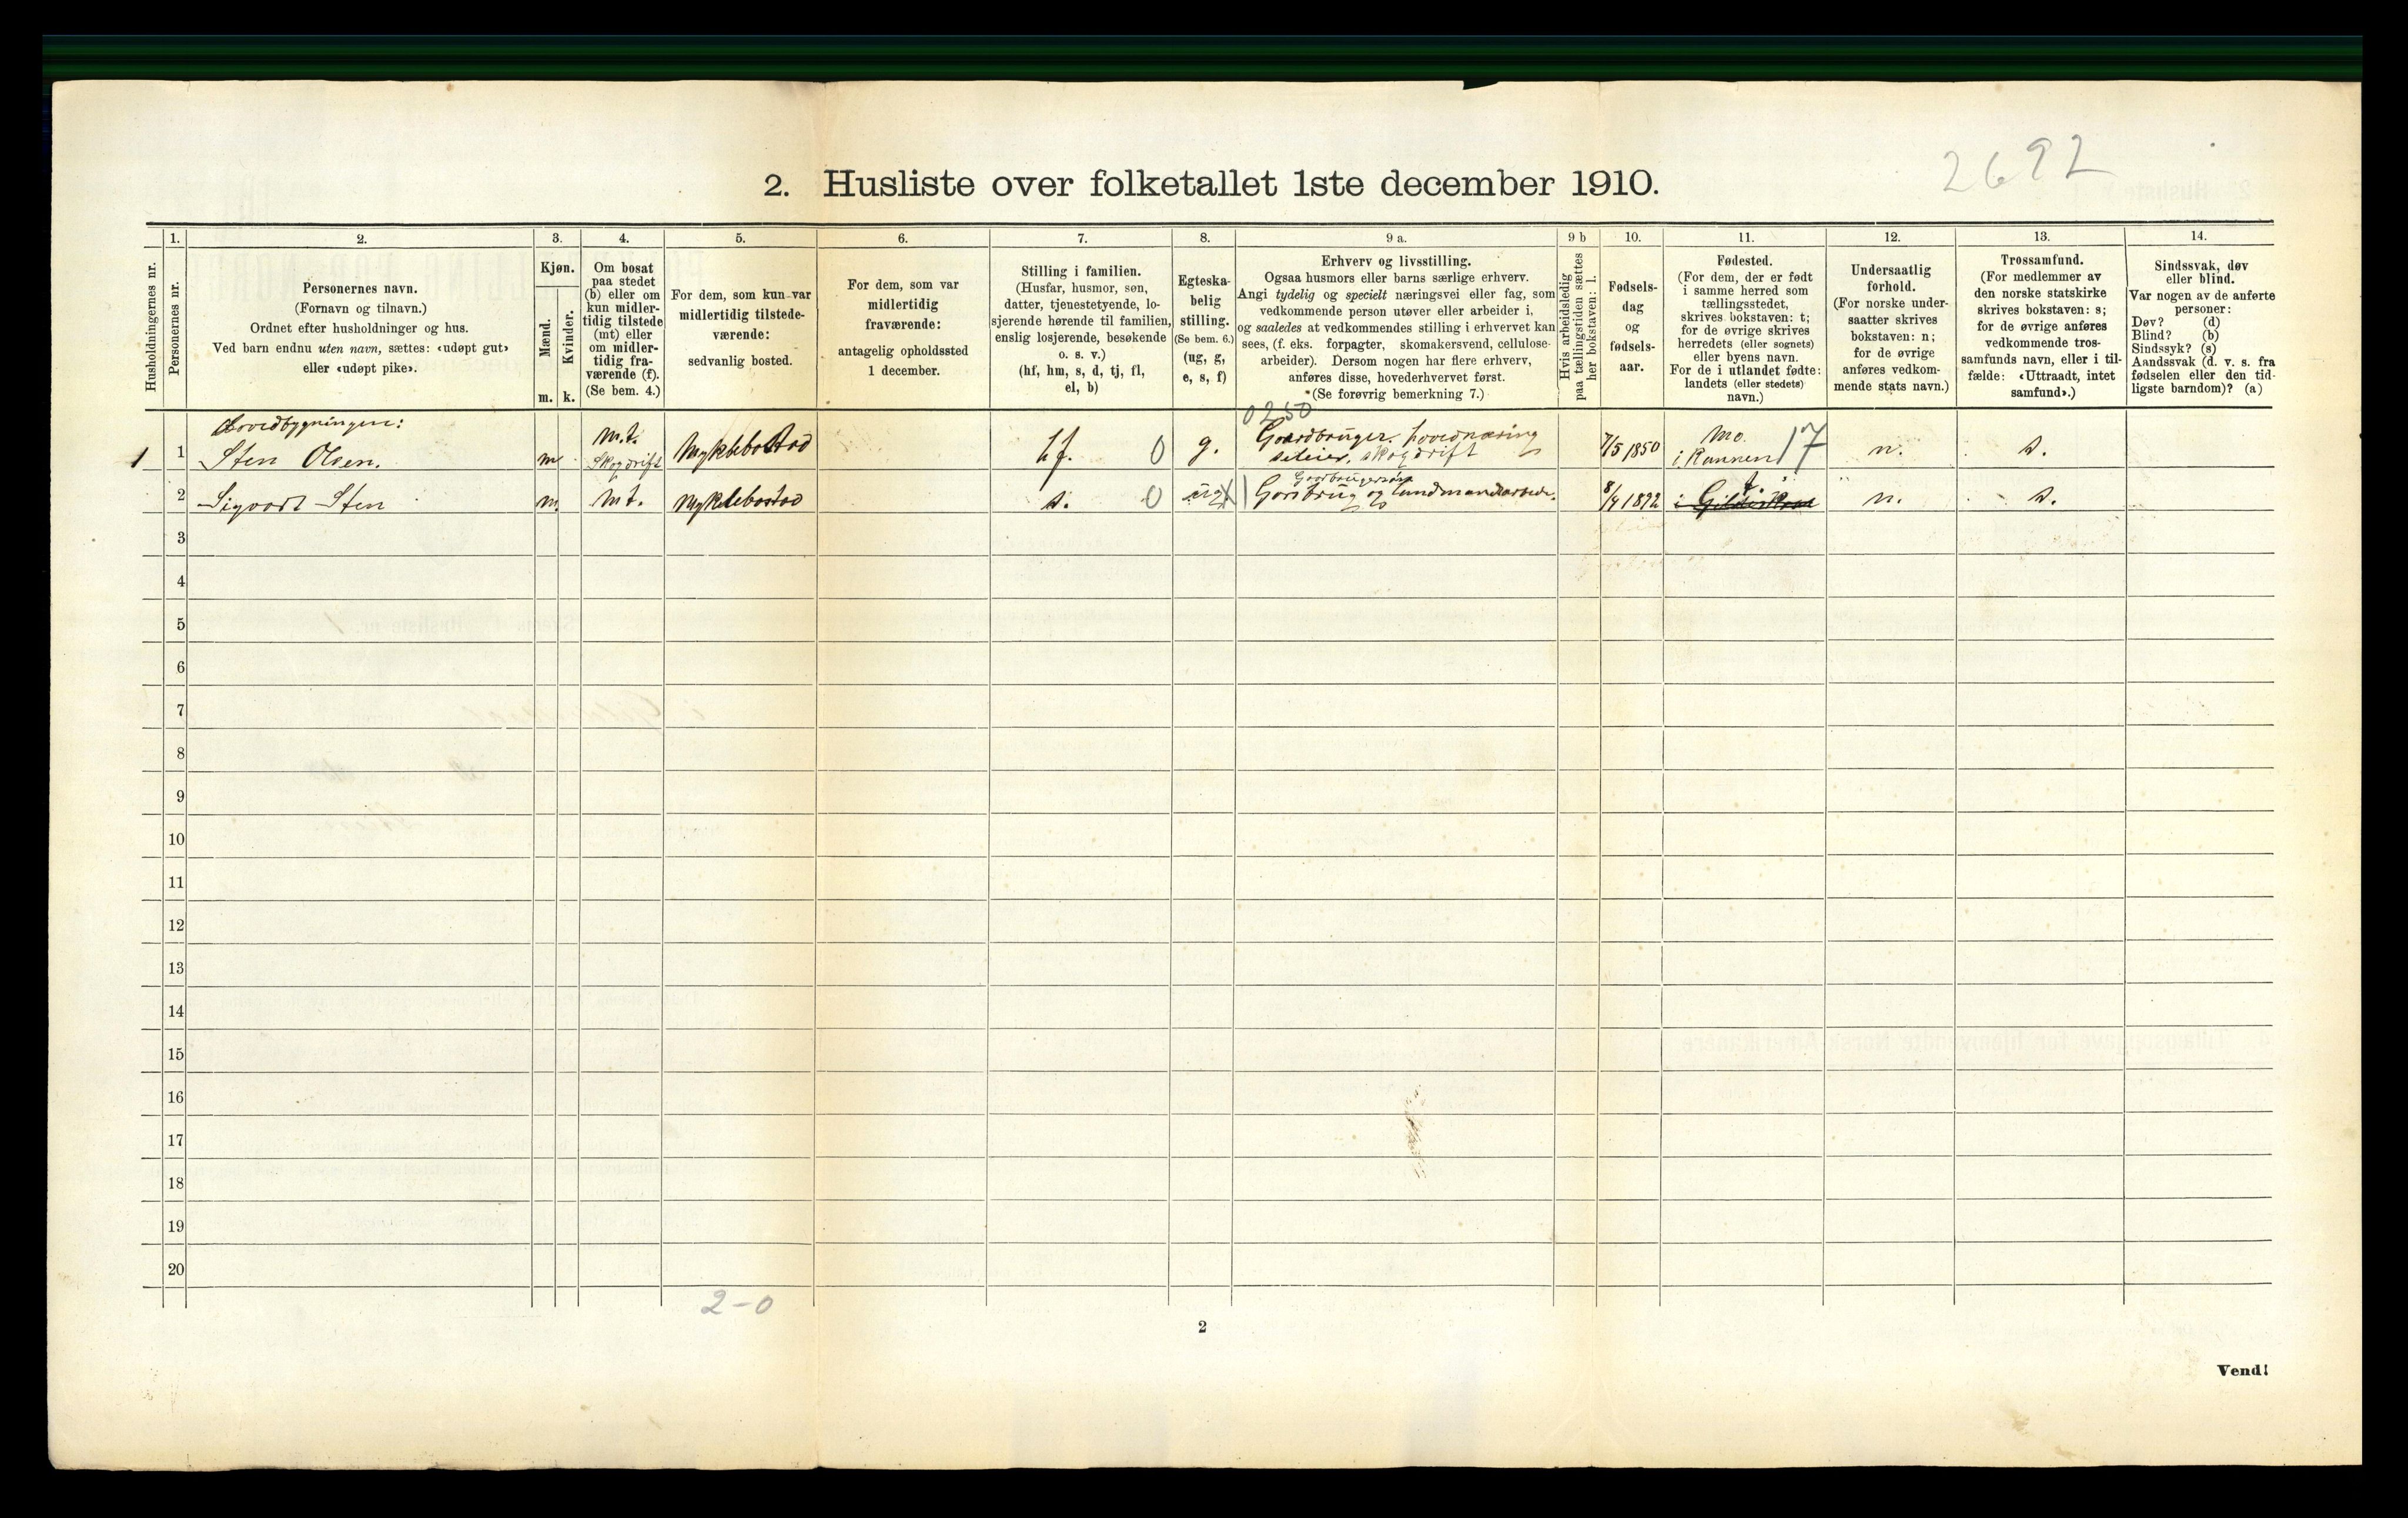 2692
2. Husliste over folketallet 1ste december 1910.
Husholdningernes nr.
1.
Personernes nr.
2.
Personernes navn.
(Fornavn og tilnavn.)
Ordnet efter husholdninger og hus.
Ved barn endnu uten navn, sættes: «udøpt gut»
eller «udøpt pike».
3.
Kjøn.
Mænd.
Kvinder.
m.
k.
4.
Om bosat
paa stedet
(b) eller om
kun midler-
tidig tilstede
(mt) eller
om midler-
tidig fra-
værende (f).
(Se bem. 4.)
5.
For dem, som kun var
midlertidig tilstede-
værende:
sedvanlig bosted.
6.
For dem, som var
midlertidig
fraværende:
antagelig opholdssted
1 december.
7.
Stilling i familien.
(Husfar, husmor, søn,
datter, tjenestetyende, lo-
sjerende hørende til familien,
enslig losjerende, besøkende
o. s. v.)
(hf, hm, s, d, tj, fl,
el, b)
8.
Egteska-
belig
stilling.
(Se bem. 6.)
(ug, g,
e, s, f)
9 a.
Erhverv og livsstilling.
Ogsaa husmors eller barns særlige erhverv.
Angi tydelig og specielt næringsvei eller fag, som
vedkommende person utøver eller arbeider i,
og saaledes at vedkommendes stilling i erhvervet kan
sees, (f. eks. forpagter, skomakersvend, cellulose-
arbeider). Dersom nogen har flere erhverv,
anføres disse, hovederhvervet først.
(Se forøvrig bemerkning 7.)
9 b
Hvis arbeidsledig
paa tællingstiden sættes
her bokstaven: l.
10.
Fødsels-
dag
og
fødsels-
aar.
11.
Fødested.
(For dem, der er født
i samme herred som
tællingsstedet,
skrives bokstaven: t;
for de øvrige skrives
herredets (eller sognets)
eller byens navn.
For de i utlandet fødte:
landets (eller stedets)
navn.)
12.
Undersaatlig
forhold.
(For norske under-
saatter skrives
bokstaven: n;
for de øvrige
anføres vedkom-
mende stats navn.)
13.
Trossamfund.
(For medlemmer av
den norske statskirke
skrives bokstaven: s;
for de øvrige anføres
vedkommende tros-
samfunds navn, eller i til-
fælde: «Uttraadt, intet
samfund».)
14.
Sindssvak, døv
eller blind.
Var nogen av de anførte
personer:
Døv? (d)
Blind? (b)
Sindssyk? (s)
Aandssvak (d. v. s. fra
fødselen eller den tid-
ligste barndom)? (a)
Hovedbygningen:
0250
1 1 Sten Olsen. m m.t. Skogdrift Myklebostad hf. 0 g. Gaardbruger. hovednæring
seleier, skogdrift 7/5 1850 Mo. i Rannen 17 n. s.
Gardbrugersøn
2 Sigvart Sten m. mt. Myklebostad s. 0 ug Gardbrug og landmandsarbeide. 8/4 1892 t. i Gildeskaal n. s.
3
4
5
6
7
8
9
10
11
12
13
14
15
16
17
18
19
20
2-0
2
Vend!